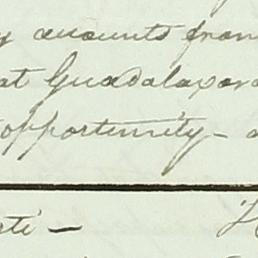 accounts from
at Guadalaxara
opportunity -